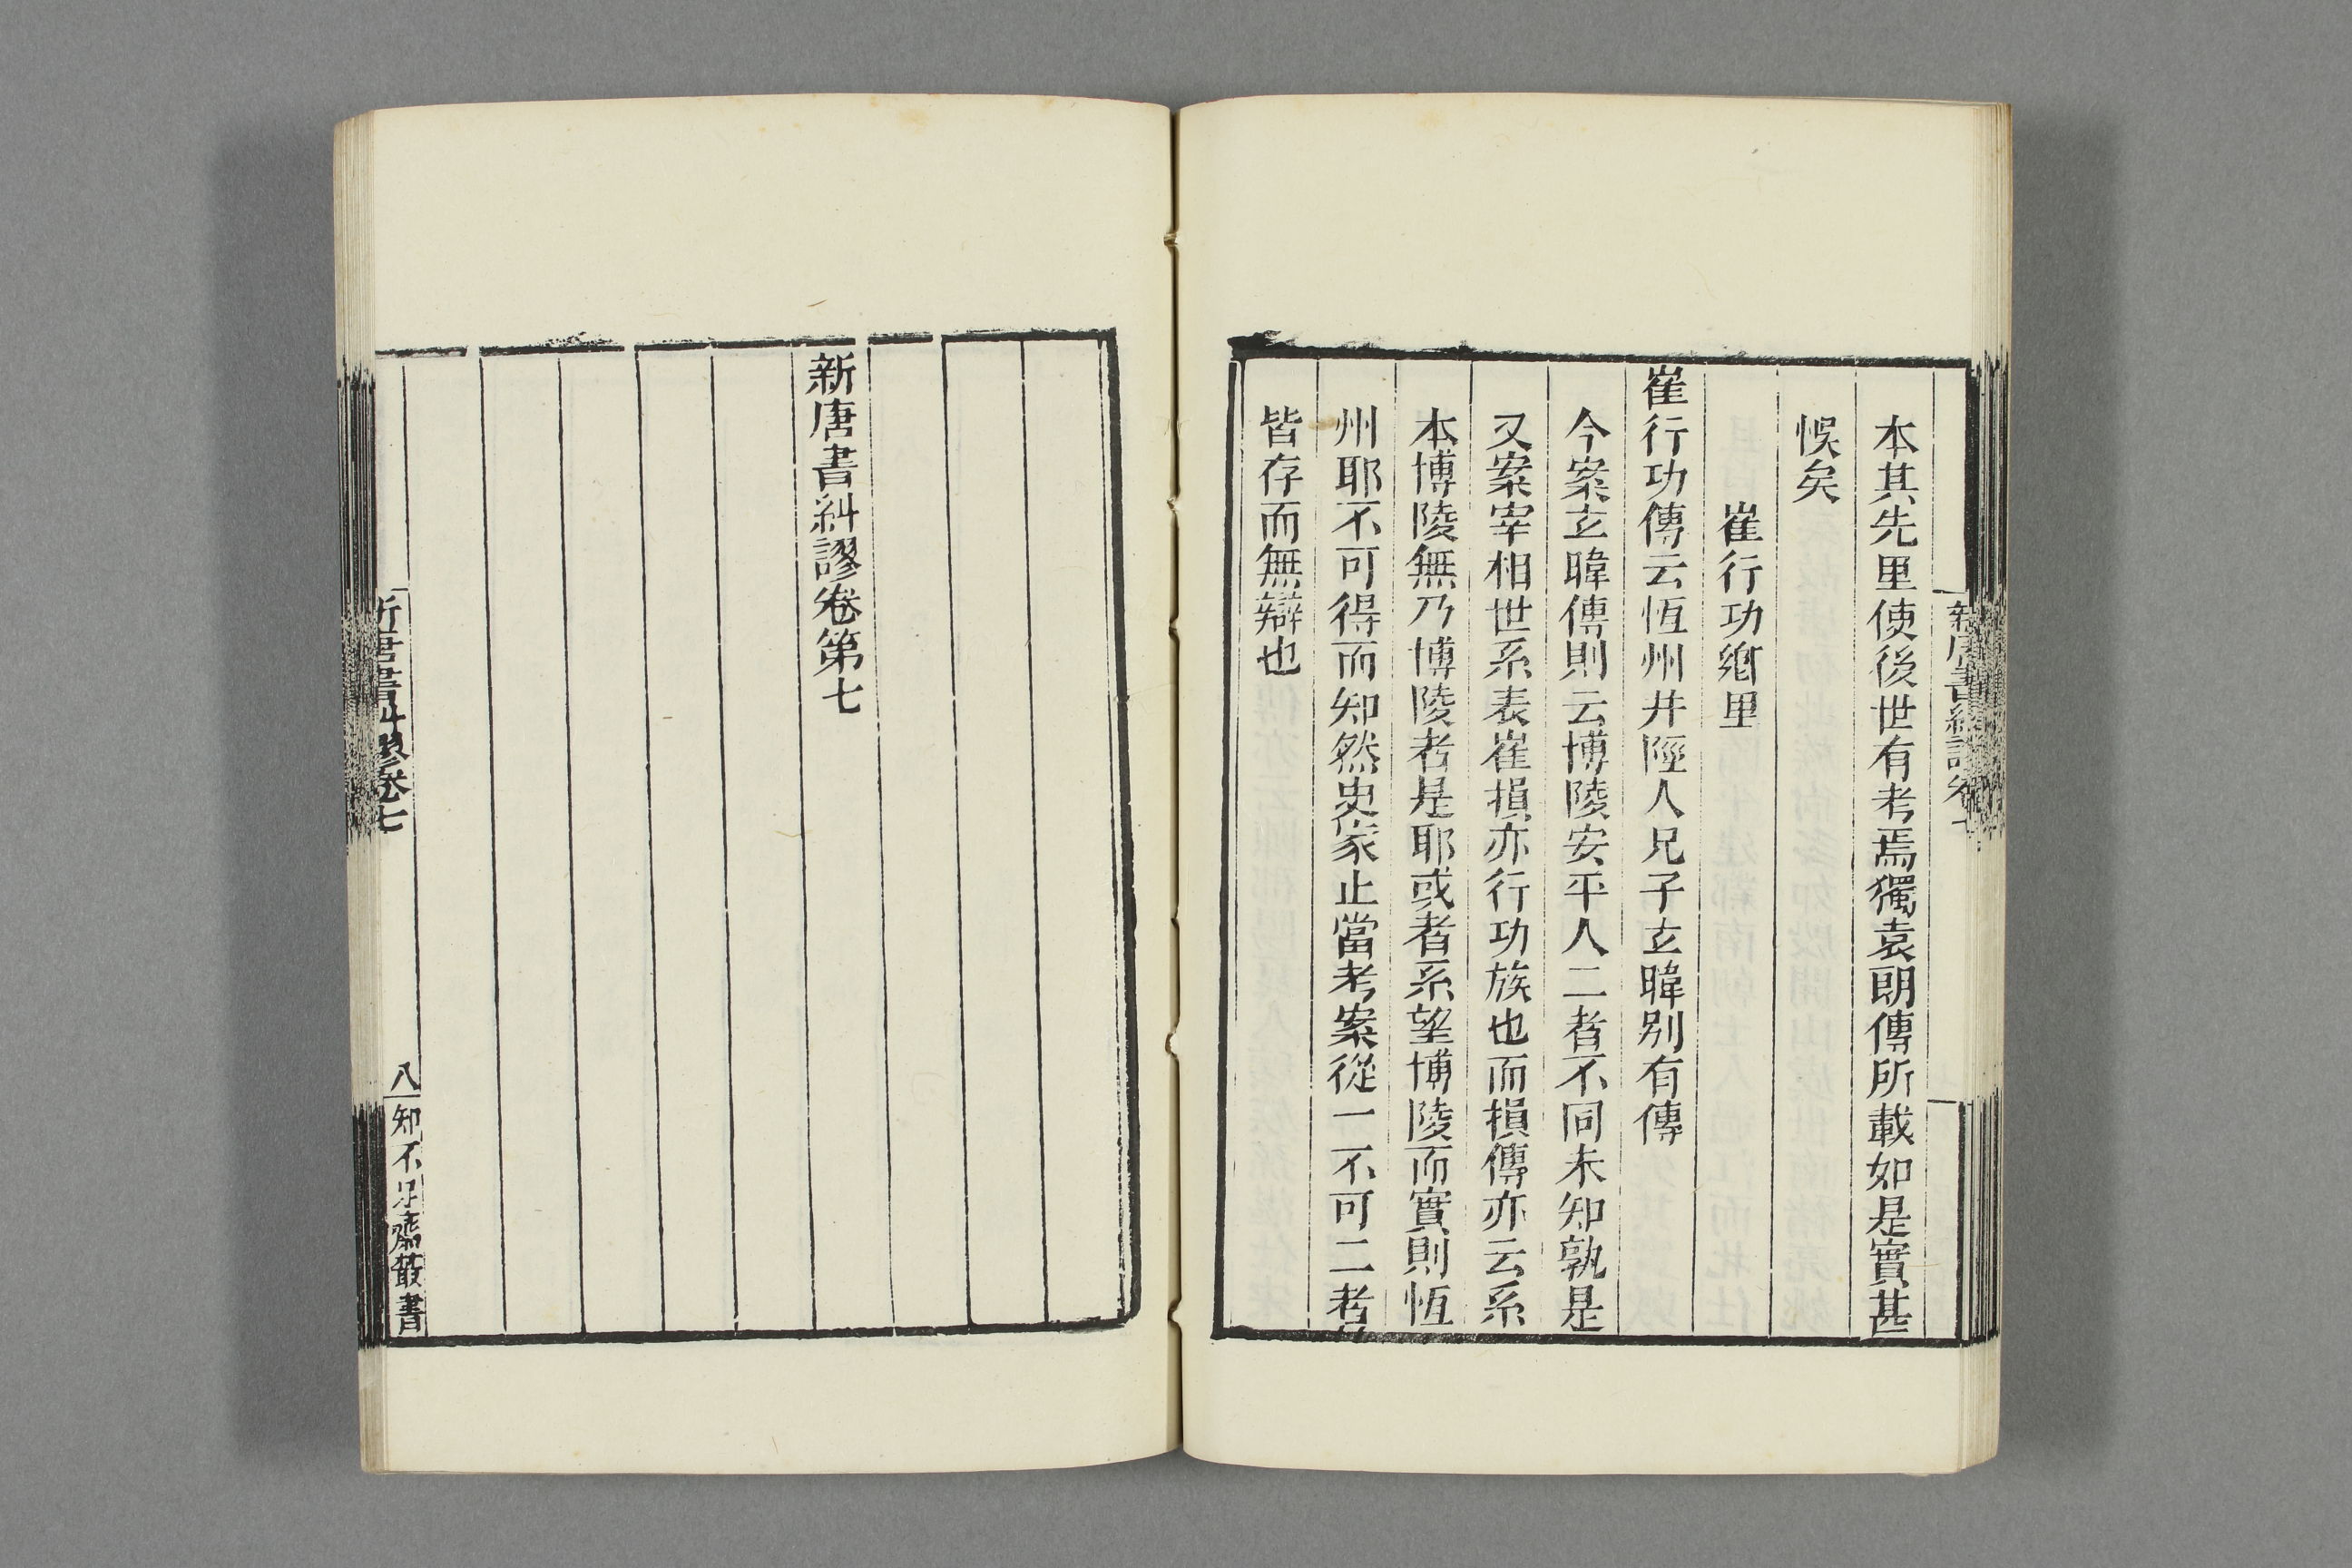 本其先里使後世有考焉獨袁朗傳所載如是實甚
悞矣
崔行功鄉里
崔行功傳云恆州井陘人兄子玄暐别有傳
今案玄暐傳則云博陵安平人二者不同未知孰是
又案宰相世系表崔損亦行功族也而損傳亦云系
本博陵無乃博陵者是耶或者系望博陵而實則恆
州耶不可得而知然史家止當考案從一不可二者
皆存而無辯也
新唐書糾謬卷第七
新唐書糾謬卷七
八
知不足齋叢書